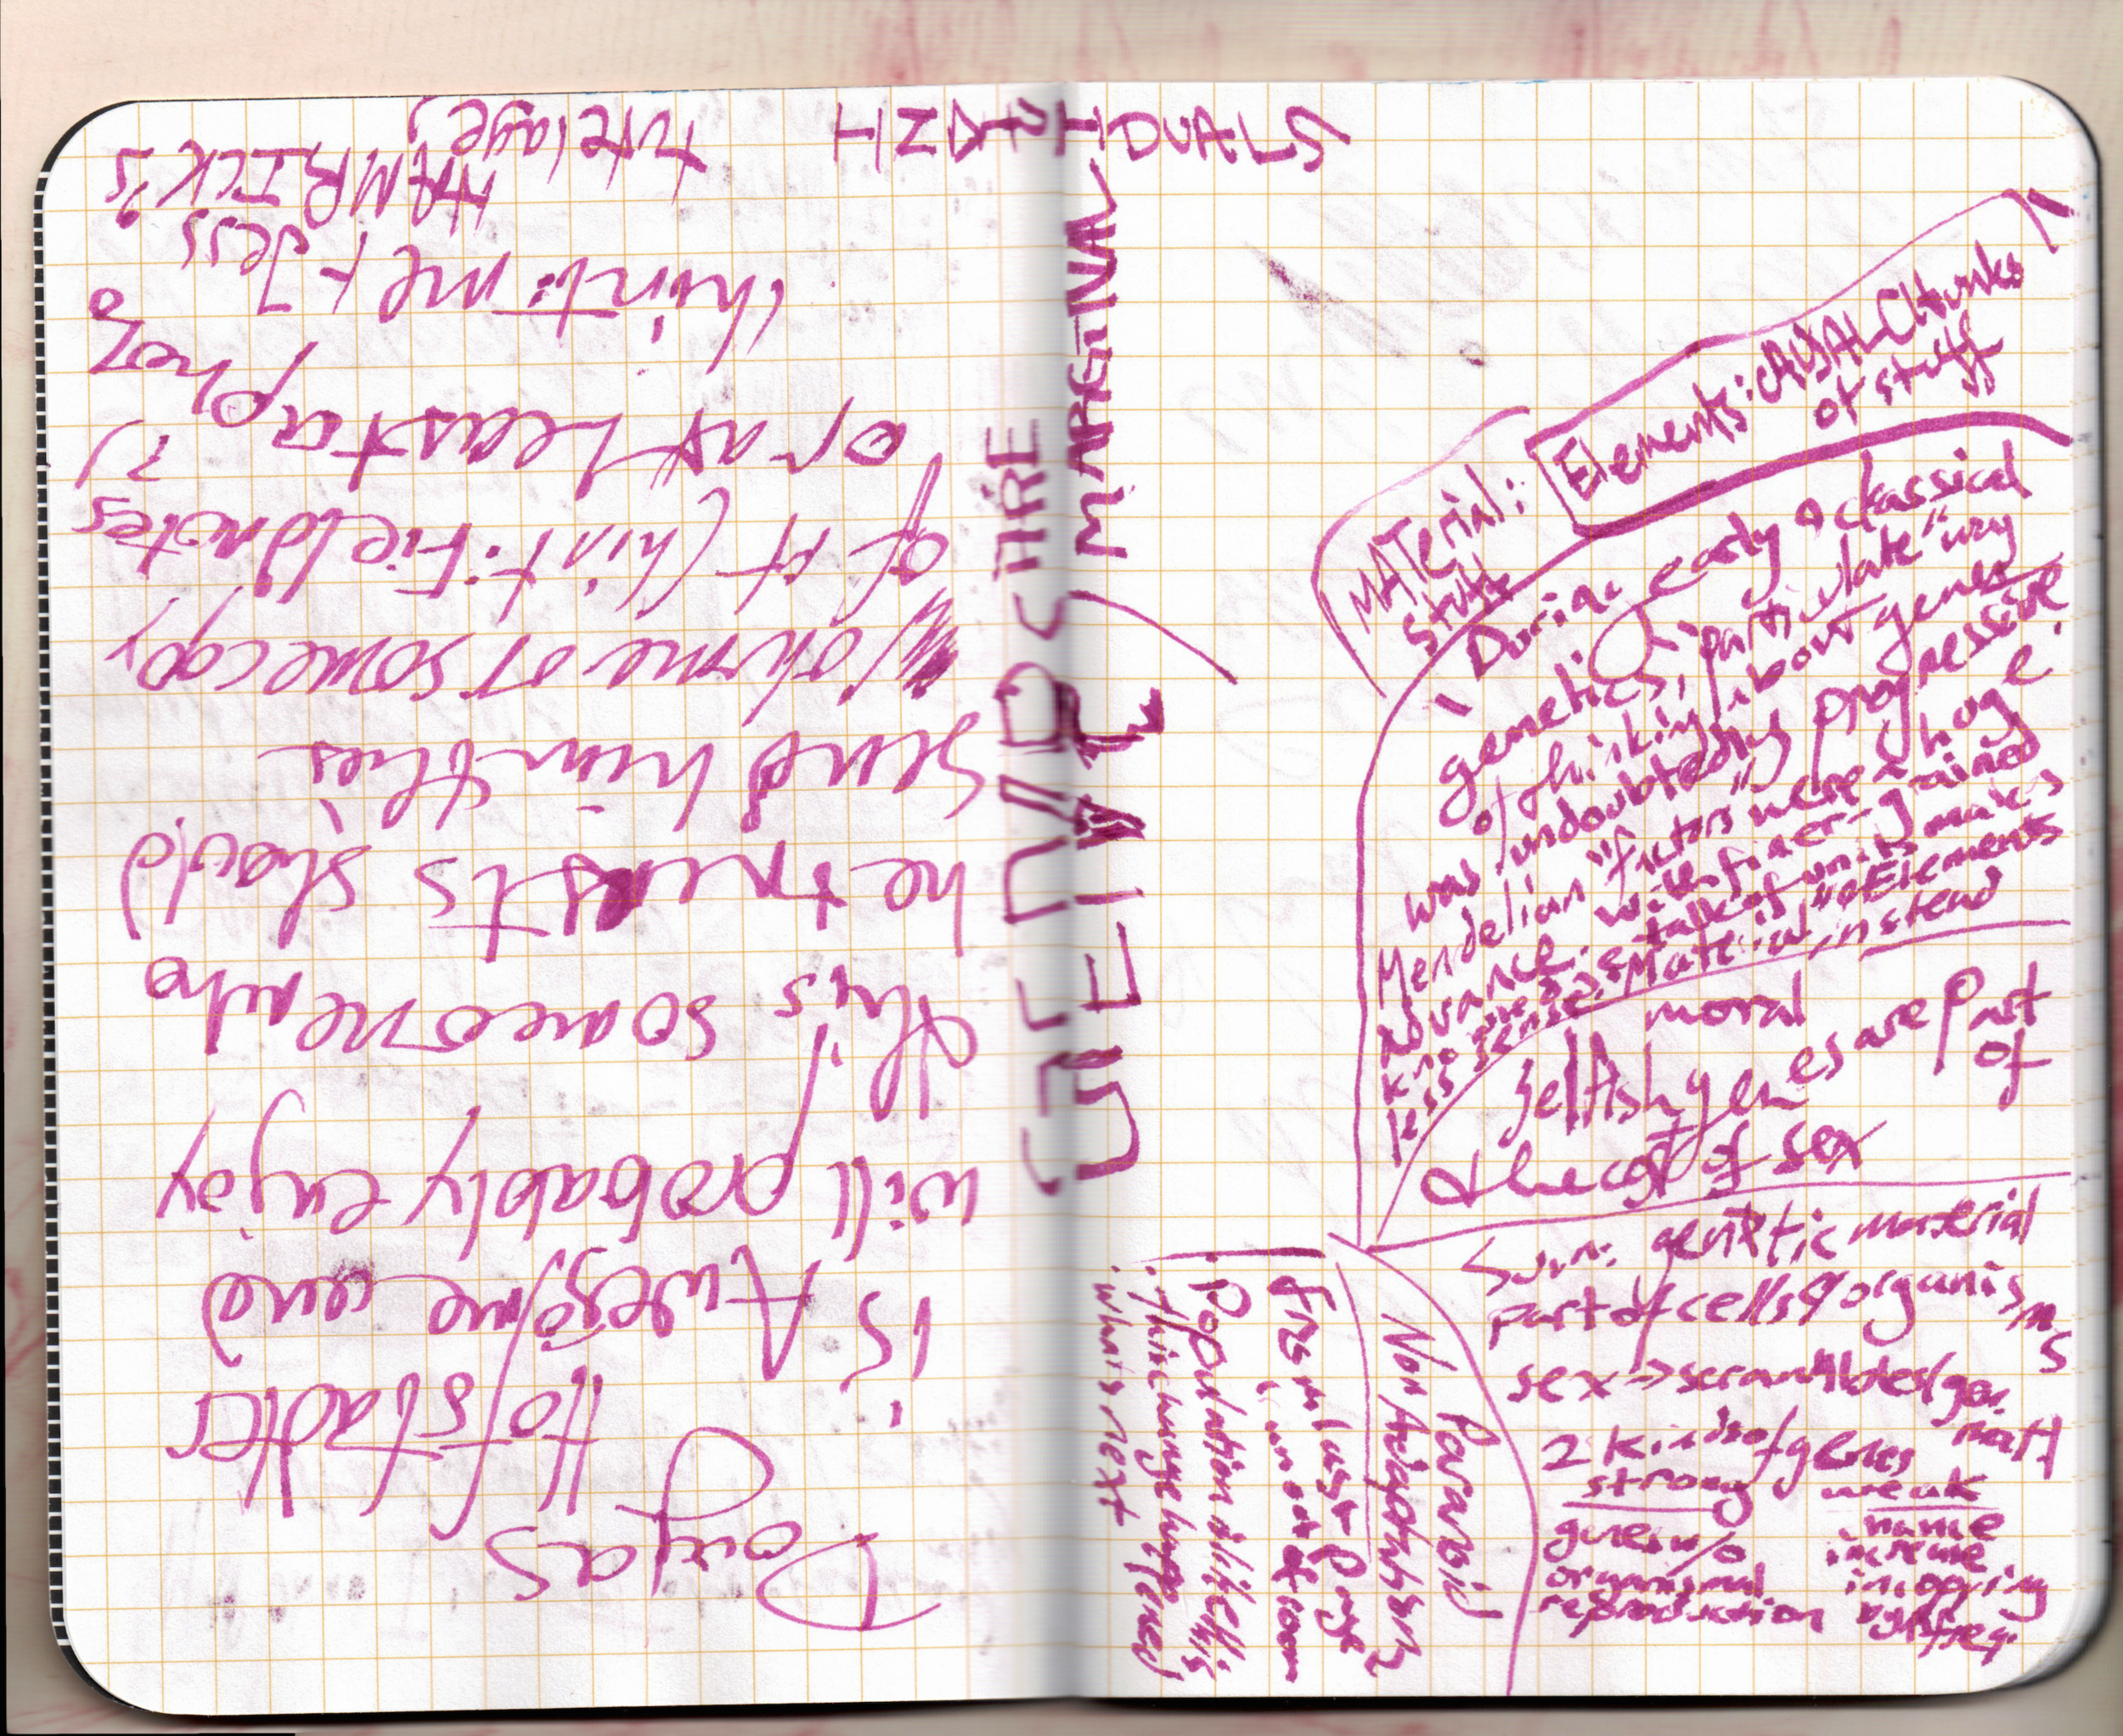 Dougas
Hofstadter
is Awesome and
will probably enjoy
this someone who
he trusts should
send him this
volume or some copy
of it (hint: Fieldnotes?)
or at least a photo
(hint: met Jess
HAMRICK's
tutelage)
INDIVIDUALS
ARE
MARGINAL
GENETIC
MATerial:
Stuff
Elements: CAUSAL Chunks
of stuff
During early & classical
genetics, "particulate" way
of thinking about genes
was undoubtedly progressive.
Mendelian "factors" were a huge
advance. With finer-grained
knowledge, talk of units makes
less sense. "Material", "Elements"
instead
moral
Selfish genes are part
of
the cost of sex
Sum: genetic material
part of cells/organisms
sex → scrambles/gen.
mat'l
2 kinds of genes
strong
weak
genes w/o
organismal
reproduction
name
increase
in copying
by freq.
Paranoid
Non Adaptatively
From last page
: Population
. think change happened
. what's next